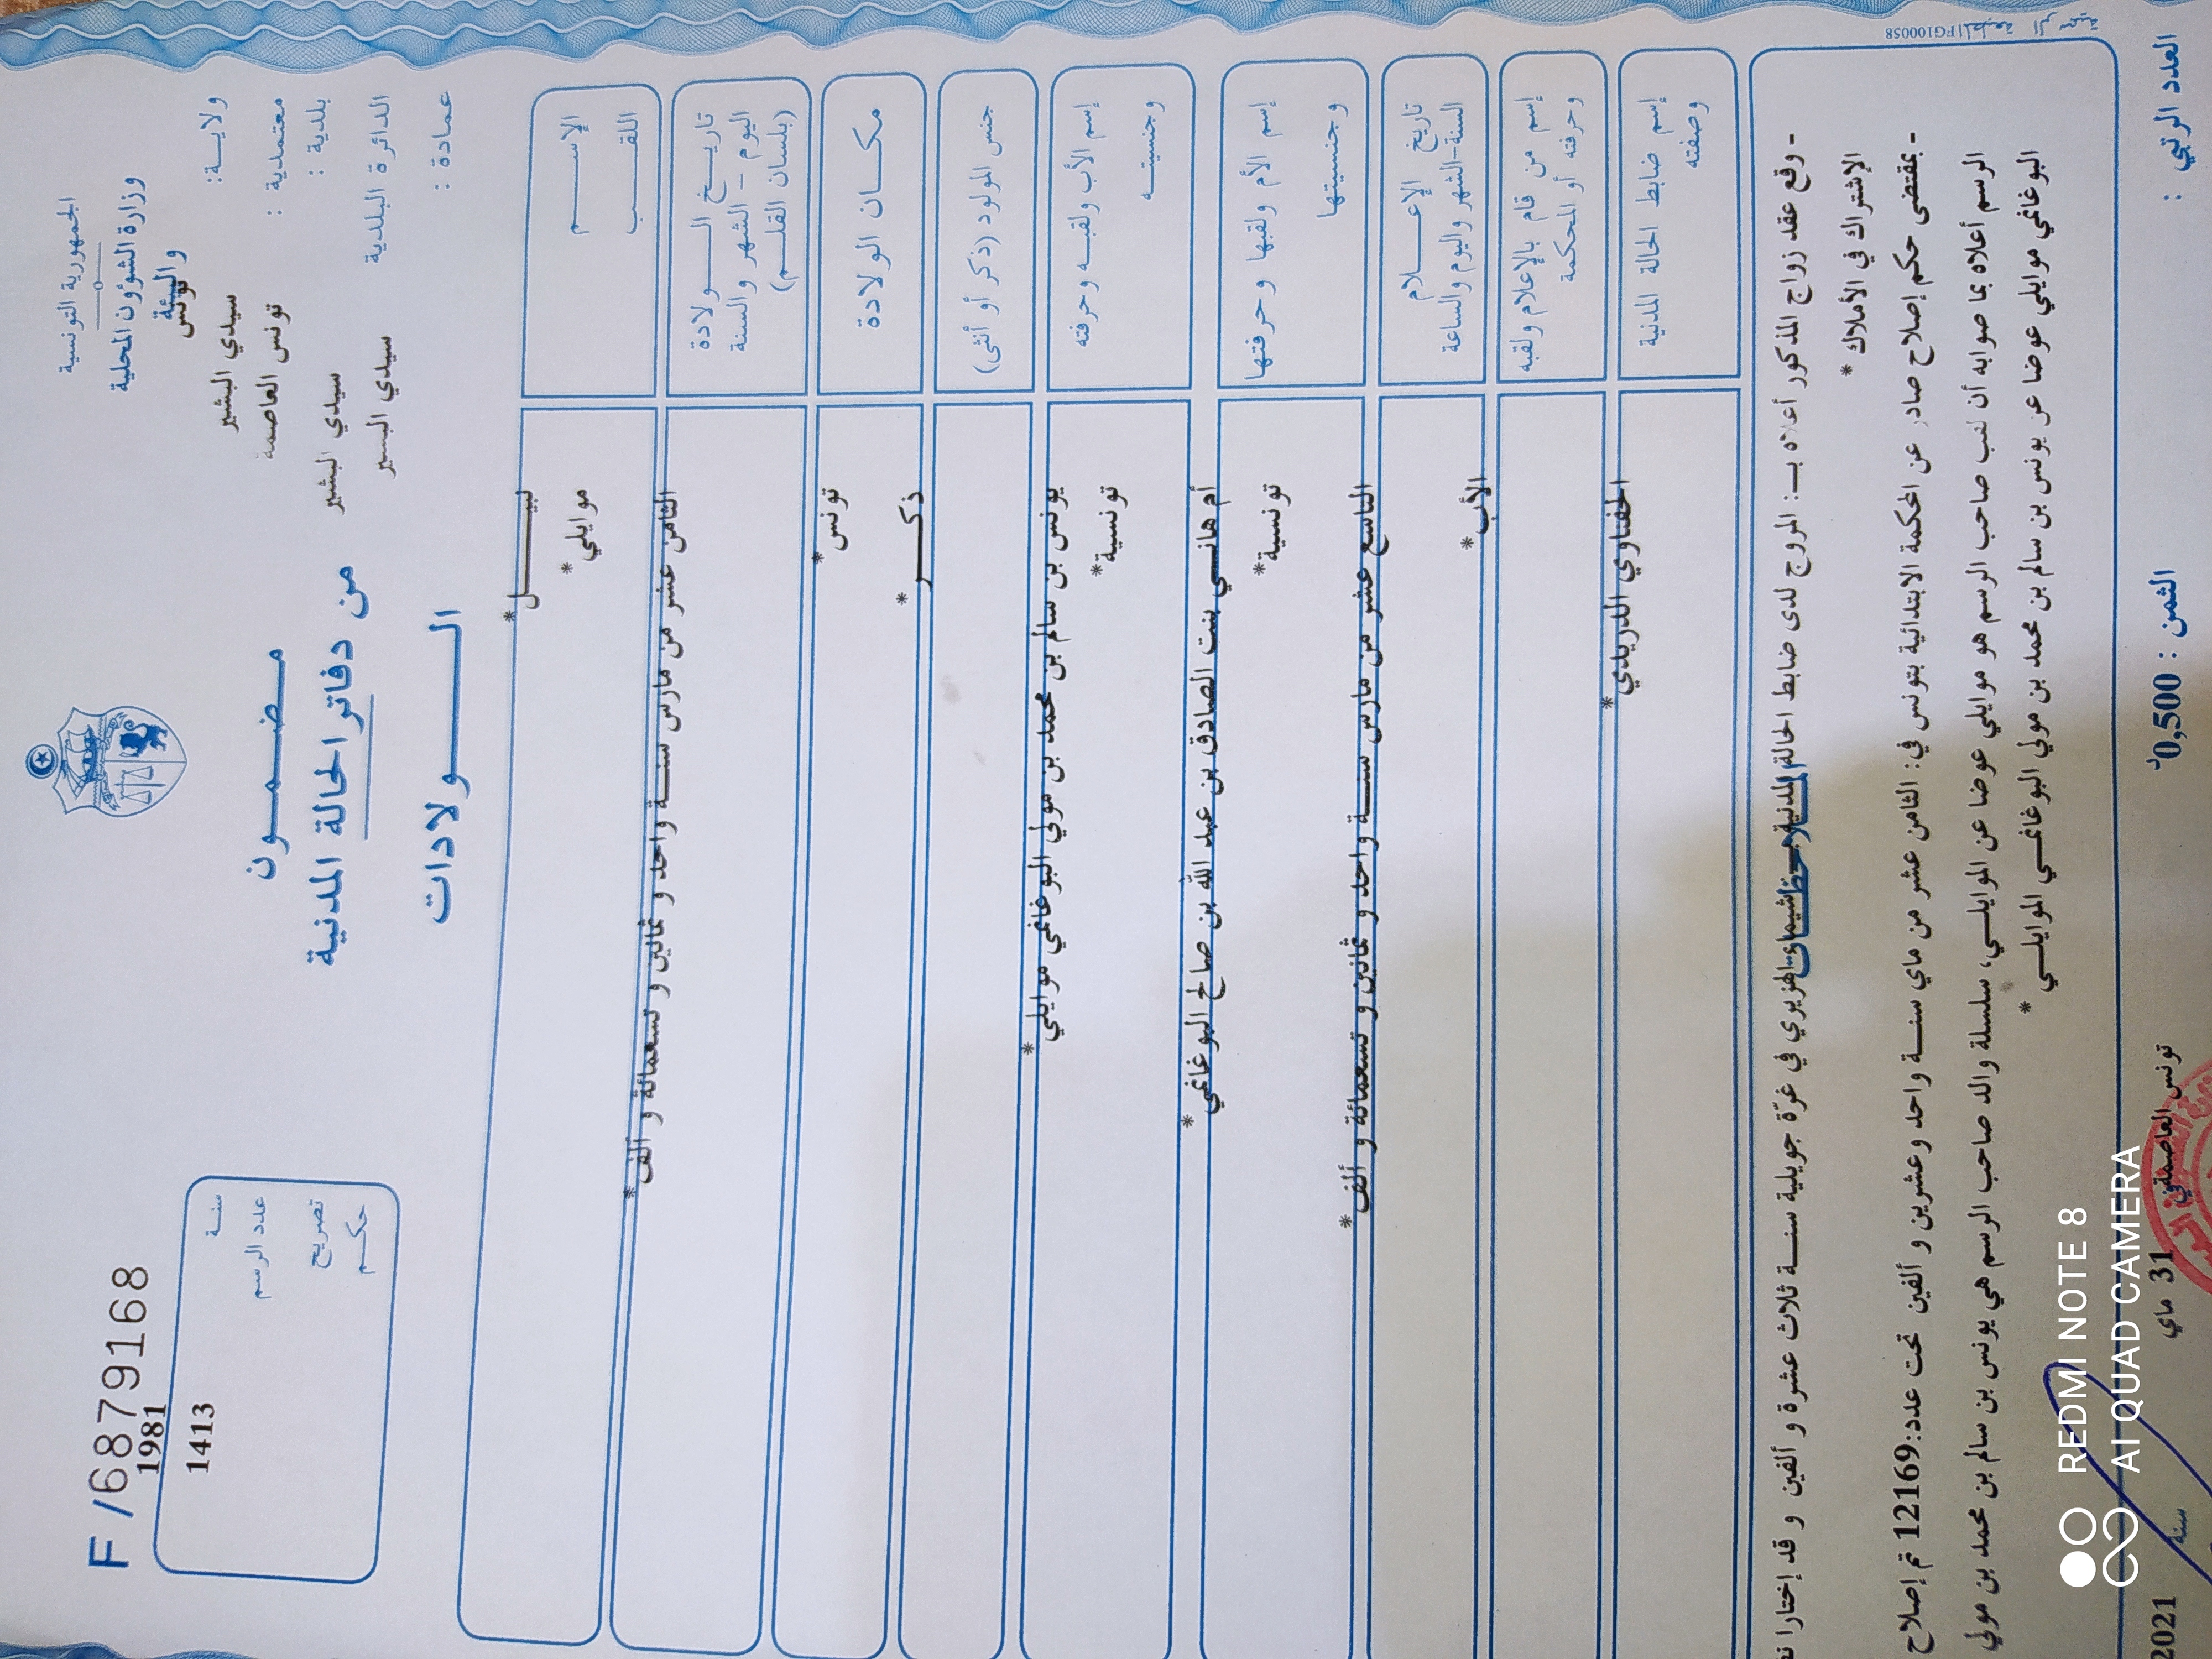 F /6879168
الجمهورية التونسية
وزارة الشؤون المحلية
والبيئة
ولايـــة: تونس
سيدي البشير
معتمدية : تونس العاصمة
بلدية : سيدي البشير
الدائرة البلدية سيدي البشير
عمادة :
سنـــة 1981
عدد الرسم 1413
تصريح
حكــم
مـــضـــمـــون
من دفاتر الحالة المدنية
الـــــولادات
الإســـــم نبيـــــــل*
اللقـــب موايلي*
تاريـــخ الـــولادة
اليوم – الشهر والسنة
(بلسان القلـــم)
الثامن عشر من مارس سنـــة واحد و ثمانين و تسعمائة و ألف*
مكـــان الولادة تونس*
جنس المولود (ذكر أو أنثى) ذكـــــر*
إسم الأب ولقبـــه وحرفته يونس بن سالم بن محمد بن مولي البوغانمي موايلي*
وجنسيتـــه تونسية*
إسم الأم ولقبها وحرفتها أم هانـــي بنت الصادق بن عبد الله بن صالح البوغانمي*
وجنسيتها تونسية*
تاريخ الإعـــلام
السنة-الشهر واليوم والساعة
التاسع عشر من مارس سنـــة واحد و ثمانين و تسعمائة و ألف*
إسم من قام بالإعلام ولقبه
وحرفته أو المحكمة
الأب*
إسم ضابط الحالة المدنية
وصفته
الحفناوي الدريدي*
- وقع عقد زواج المذكور أعلاه بـ: المروج لدى ضابط الحالة المدنية الهزيري في غرّة جويلية سنـــة ثلاث عشرة و ألفين و قد إختارا
الإشتراك في الأملاك *
- بمقتضى حكم إصلاح صادر عن المحكمة الابتدائية بتونس في: الثامن عشر من ماي سنـــة واحد وعشرين و ألفين تحت عدد:12169 تم إصلاح
الرسم أعلاه بما صوابه أن لقب صاحب الرسم هو موايلي عوضا عن الموايلـــي، سلسلة والد صاحب الرسم هي يونس بن سالم بن محمد بن مولي
البوغانمي موايلي عوضا عن يونس بن سالم بن محمد بن مولي البوغانمـــي الموايلـــي *
FG100058
العدد الرتبي :
الثمن : 0,500د
تونس العاصمة في 31 ماي سنة 2021
REDMI NOTE 8
AI QUAD CAMERA